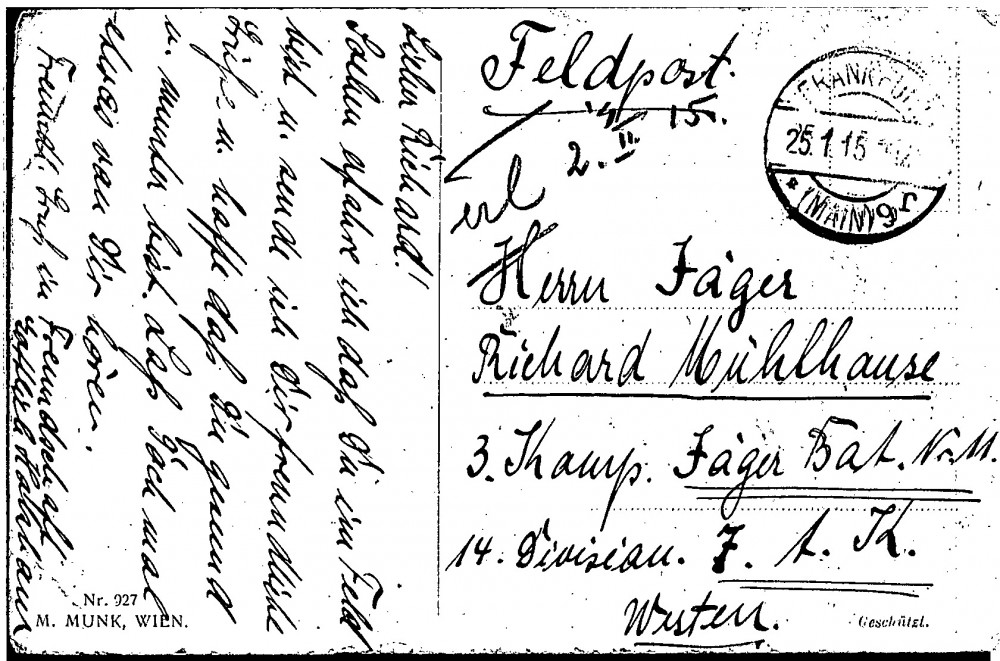 Lieber Richard!
Soeben erfahre ich daß Du im Feld
bist u. sende ich Dir freundliche
Grüße u. hoffe daß Du gesund
u. munter bist. Laß Doch mal
etwas von Dir hören.
Freundl. Gruß in Freundschaft
Nr. 927
M. MUNK, WIEN.
Feldpost.
15.
2. II.
erl
FRANKFURT
25.1.15
* (MAIN) 9
Herrn Jäger
Richard Mühlhause
3. Komp. Jäger Bat. No. 11.
14. Division. 7. A. K.
Westen.
Geschützt.